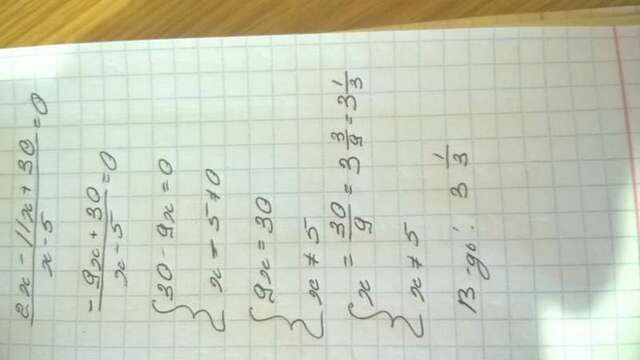 2x - 11x + 30 / x - 5 = 0
-9x + 30 / x - 5 = 0
{ 30 - 9x = 0
x - 5 ≠ 0
{ 9x = 30
x ≠ 5
{ x = 30/9 = 3 3/9 = 3 1/3
x ≠ 5
В-дь: 3 1/3